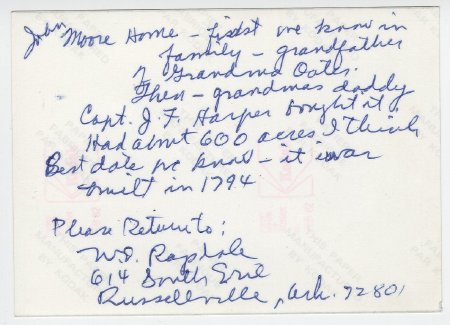 John
Moore Home - firdst we know in
family - grandfather
of Grandma Oates.
Then - grandmas daddy
Capt. J. F. Harper bought it
Had about 600 acres I think
Best date we know - it was
built in 1794
Please Return to:
W. D. Ragsdale
614 South Erie
Russellville, Ark. 72801